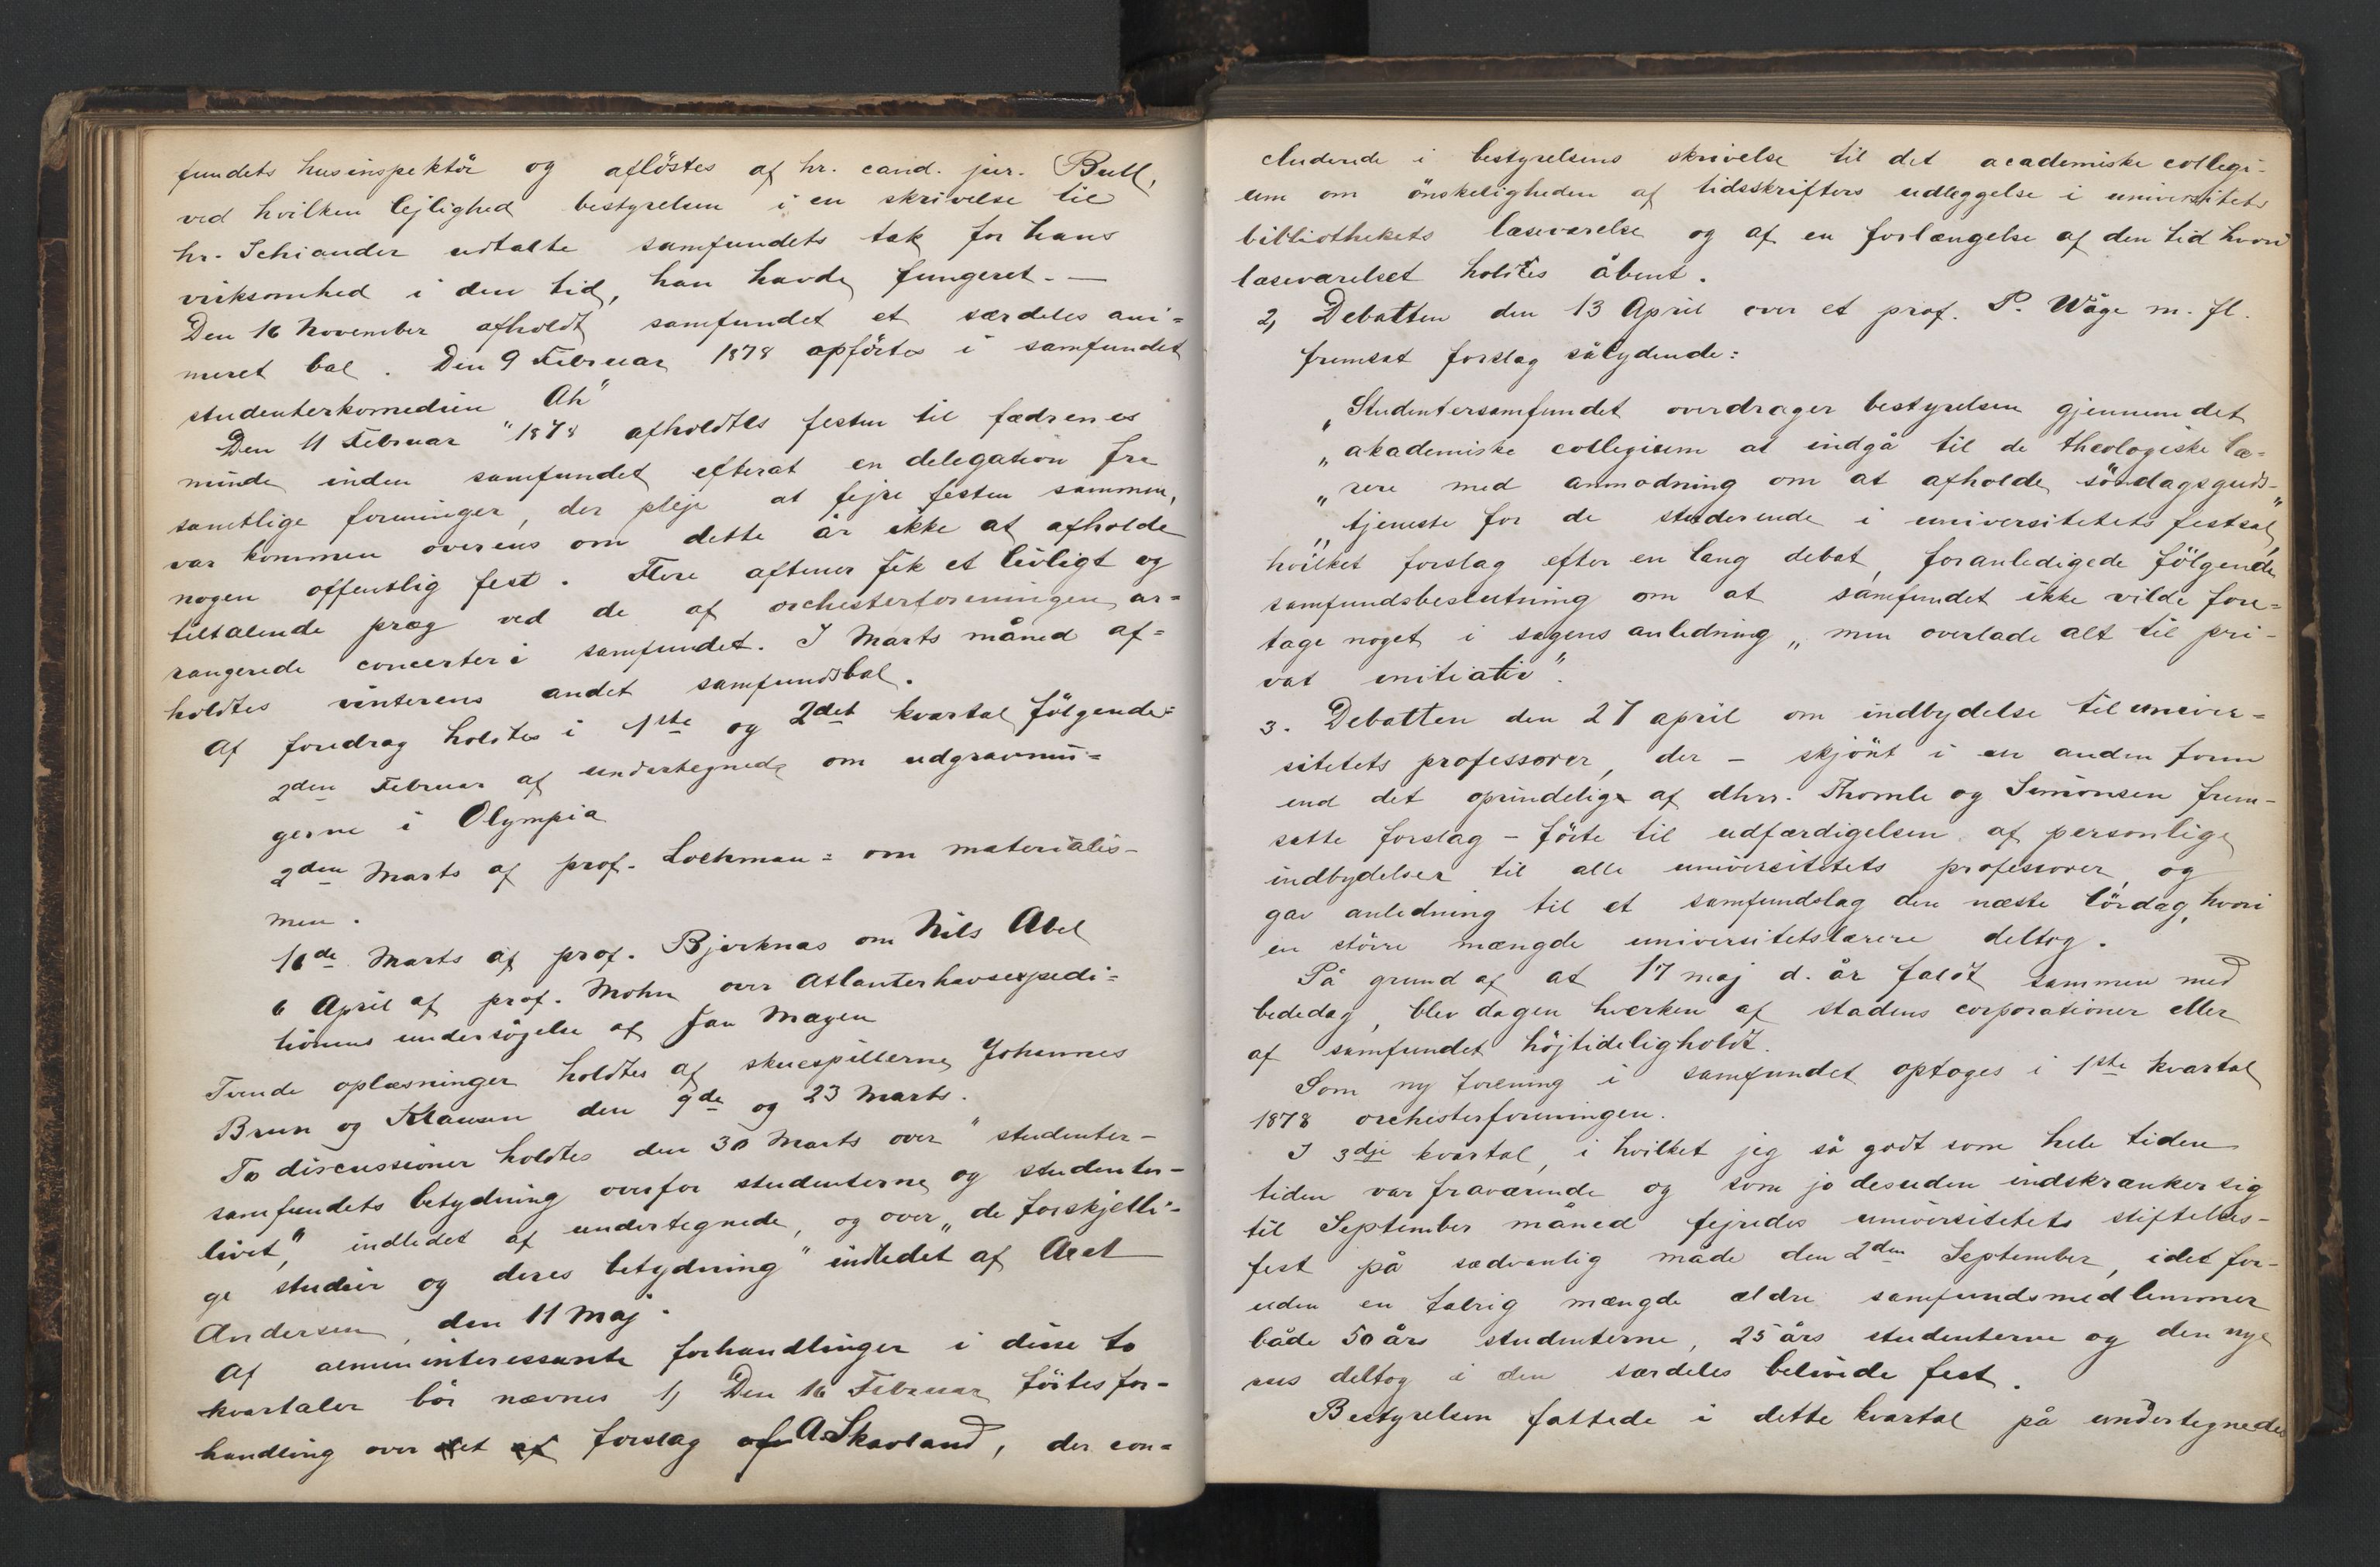 fundets husinspektör og aflöstes af hr. cand. jur. Bull,
ved hvilken lejlighed bestyrelsen i en skrivelse til
hr. Schiander udtalte samfundets tak for hans
virksomhed i den tid, han havde fungeret. —
Den 16 November afholdt samfundet et særdeles ani=
meret bal. Den 9 Februar 1878 opförtes i samfundet
studenterkomedien "Ah"
Den 11 Februar 1878 afholdtes festen til fædrenes
minde inden samfundet efterat en delegation fra
samtlige foreninger, der pleje at fejre festen sammen,
var kommen overens om dette år ikke at afholde
nogen offentlig fest. Flere aftener fik et livligt og
tiltalende præg ved de af orchesterforeningen ar=
rangerede concerter i samfundet. I Marts måned af=
holdtes vinterens andet samfundsbal.
Af foredrag holdtes i 1ste og 2det kvartal fölgende:
2den Februar af undertegnede om udgravnin=
gerne i Olympia
2den Marts af prof. Lochman: om materialis-
men.
16de Marts af prof. Bjerknæs om Nils Abel
6 April af prof. Mohn over Atlanterhavsexpedi=
tionens undersögelse af Jan Mayen
Tvende oplæsninger holdtes af skuespillerne Johannes
Brun og Klausen den 9de og 23 Marts.
To discussioner holdtes den 30 Marts over "studenter-
samfundets betydning overfor studenterne og studenter-
livet," indledet af undertegnede, og over „de forskjelli-
ge studier og deres betydning" indledet af Axel
Andersen, den 11 Maj.
Af almeninteressante forhandlinger i disse to
kvartaler bör nævnes 1) Den 16 Februar förtes for-
handling over et forslag af A. Skavland, der con=
cluderede i bestyrelsens skrivelse til det academiske collegi-
um om önskeligheden af tidsskrifters udlæggelse i universitets
bibliothekets læseværelse og af en forlængelse af den tid hvori
læseværelset holdtes åbent.
2) Debatten den 13 April over et prof. P. Wåge m. fl.
fremsat forslag sålydende:
„Studentersamfundet overdrager bestyrelsen gjennem det
„akademiske collegium at indgå til de theologiske læ=
„rere med anmodning om at afholde söndagsguds-
„tjeneste for de studerende i universitetets festsal,"
hvilket forslag efter en lang debat, foranledigede fölgende
samfundsbeslutning om at samfundet ikke vilde fore=
tage noget i sagens anledning „men overlade alt til pri-
vat initiativ".
3. Debatten den 27 april om indbydelse til univer=
sitetets professorer, der – skjönt i en anden form
end det oprindelige af dhrr. Thomle og Simonsen frem-
satte forslag – förte til udfærdigelsen af personlige
indbydelser til alle universitetets professorer og
gav anledning til et samfundslag den næste lördag, hvori
en större mængde universitetslærere deltog.
På grund af at 17 maj d. år faldt sammen med
bededag, blev dagen hverken af stadens corporationer eller
af samfundet höjtideligholdt.
Som ny forening i samfundet optoges i 1ste kvartal
1878 orchesterforeningen.
I 3dje kvartal, i hvilket jeg så godt som hele tiden
tiden var fraværende og som jo desuden indskrænker sig
til September måned fejredes universitetets stiftelses-
fest på sædvanlig måde den 2den September, idet for-
uden en talrig mængde ældre samfundsmedlemmer
både 50 års studenterne, 25 års studenterne og den nye
rus deltog i den særdeles belivede fest.
Bestyrelsen fattede i dette kvartal på undertegnedes